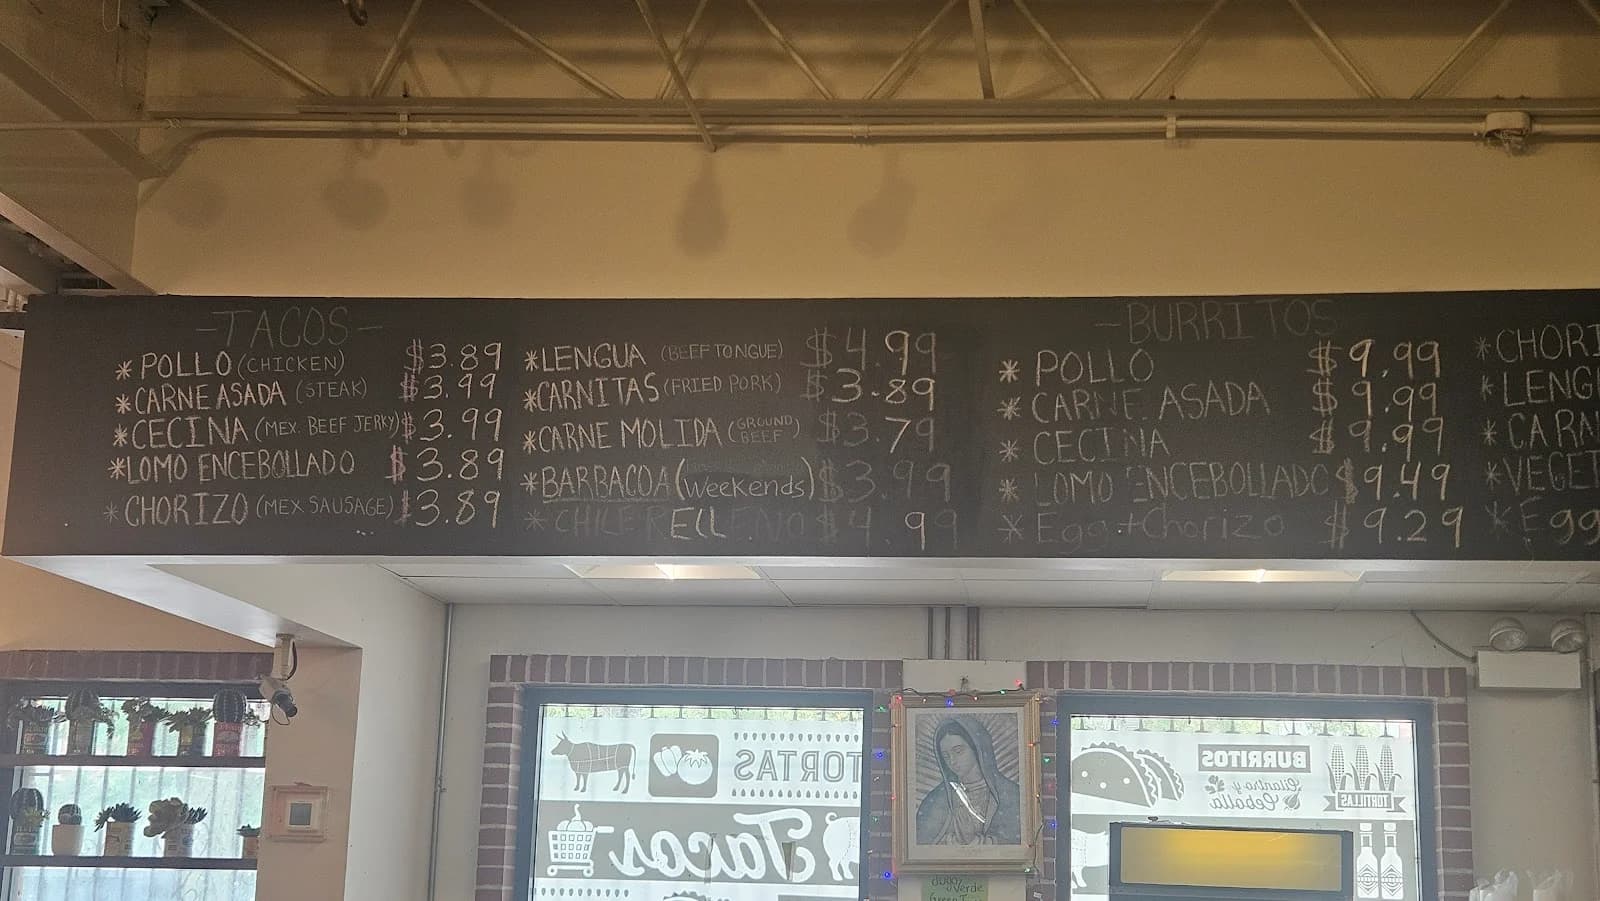 -TACOS-
* POLLO (CHICKEN) $3.89
* CARNE ASADA (STEAK) $3.99
* CECINA (MEX. BEEF JERKY) $3.99
* LOMO ENCEBOLLADO $3.89
* CHORIZO (MEX SAUSAGE) $3.89
* LENGUA (BEEF TONGUE) $4.99
* CARNITAS (FRIED PORK) $3.89
* CARNE MOLIDA (GROUND BEEF) $3.79
* BARBACOA (Weekends) $3.99
* CHILE RELLENO $4.99
-BURRITOS
* POLLO $9.99
* CARNE ASADA $9.99
* CECINA $9.99
* LOMO ENCEBOLLADO $9.49
* Egg + Chorizo $9.29
* CHORI
* LENG
* CARN
* VEGET
* Egg
TORTAS
Tacos
BURRITOS
Cilantro y
Cebolla
TORTILLAS
Verde